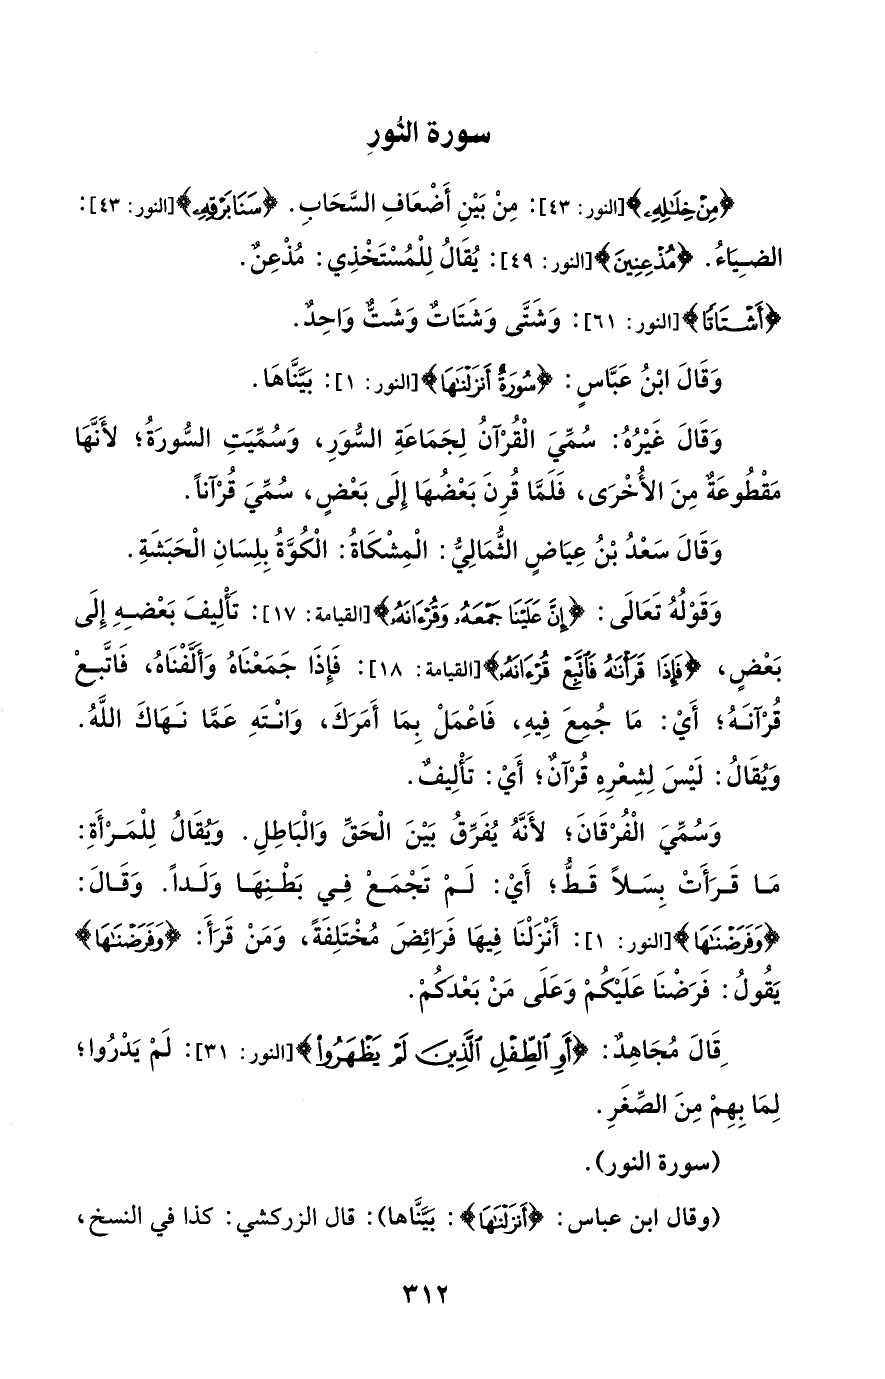 سورة النُّورِ
﴿مِنْ خِلَٰلِهِۦ﴾[النور: ٤٣]: مِنْ بَيْنِ أَضْعَافِ السَّحَابِ. ﴿سَنَا بَرْقِهِۦ﴾[النور: ٤٣]:
الضِيَاءُ. ﴿مُذْعِنِينَ﴾[النور: ٤٩]: يُقَالُ لِلْمُسْتَخْذِي: مُذْعِنٌ.
﴿أَشْتَاتًا﴾[النور: ٦١]: وَشَتَّى وَشَتَاتٌ وَشَتٌّ وَاحِدٌ.
وَقَالَ ابْنُ عَبَّاسٍ: ﴿سُورَةٌ أَنزَلْنَٰهَا﴾[النور: ١]: بَيَّنَّاهَا.
وَقَالَ غَيْرُهُ: سُمِّيَ الْقُرْآنُ لِجَمَاعَةِ السُّوَرِ، وَسُمِّيَتِ السُّورَةُ؛ لأَنَّهَا
مَقْطُوعَةٌ مِنَ الأُخْرَى، فَلَمَّا قُرِنَ بَعْضُهَا إِلَى بَعْضٍ، سُمِّيَ قُرْآناً.
وَقَالَ سَعْدُ بْنُ عِيَاضٍ الثُّمَالِيُّ: الْمِشْكَاةُ: الْكُوَّةُ بِلِسَانِ الْحَبَشَةِ.
وَقَوْلُهُ تَعَالَى: ﴿إِنَّ عَلَيْنَا جَمْعَهُۥ وَقُرْءَانَهُۥ﴾[القيامة: ١٧]: تَأْلِيفَ بَعْضِهِ إِلَى
بَعْضٍ، ﴿فَإِذَا قَرَأْنَٰهُ فَٱتَّبِعْ قُرْءَانَهُۥ﴾[القيامة: ١٨]: فَإِذَا جَمَعْنَاهُ وَأَلَّفْنَاهُ، فَاتَّبِعْ
قُرْآنَهُ؛ أَيْ: مَا جُمِعَ فِيهِ، فَاعْمَلْ بِمَا أَمَرَكَ، وَانْتَهِ عَمَّا نَهَاكَ اللَّهُ.
وَيُقَالُ: لَيْسَ لِشِعْرِهِ قُرْآنٌ؛ أَيْ: تَأْلِيفٌ.
وَسُمِّيَ الْفُرْقَانَ؛ لأَنَّهُ يُفَرِّقُ بَيْنَ الْحَقِّ وَالْبَاطِلِ. وَيُقَالُ لِلْمَرْأَةِ:
مَا قَرَأَتْ بِسَلاً قَطُّ؛ أَيْ: لَمْ تَجْمَعْ فِي بَطْنِهَا وَلَداً. وَقَالَ:
﴿وَفَرَضْنَٰهَا﴾[النور: ١]: أَنْزَلْنَا فِيهَا فَرَائِضَ مُخْتَلِفَةً، وَمَنْ قَرَأَ: ﴿وَفَرَضْنَٰهَا﴾
يَقُولُ: فَرَضْنَا عَلَيْكُمْ وَعَلَى مَنْ بَعْدَكُمْ.
قَالَ مُجَاهِدٌ: ﴿أَوِ ٱلطِّفْلِ ٱلَّذِينَ لَمْ يَظْهَرُوا۟﴾[النور: ٣١]: لَمْ يَدْرُوا؛
لِمَا بِهِمْ مِنَ الصِّغَرِ.
(سورة النور).
(وقال ابن عباس: ﴿أَنزَلْنَٰهَا﴾: بَيَّنَّاها): قال الزركشي: كذا في النسخ،
٣١٢